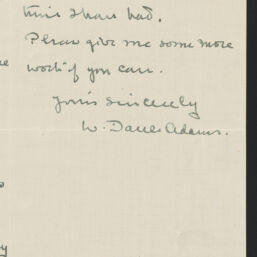 time I have had.
Please give me some more
work if you can.
Yours sincerely
W. Davies Adams.